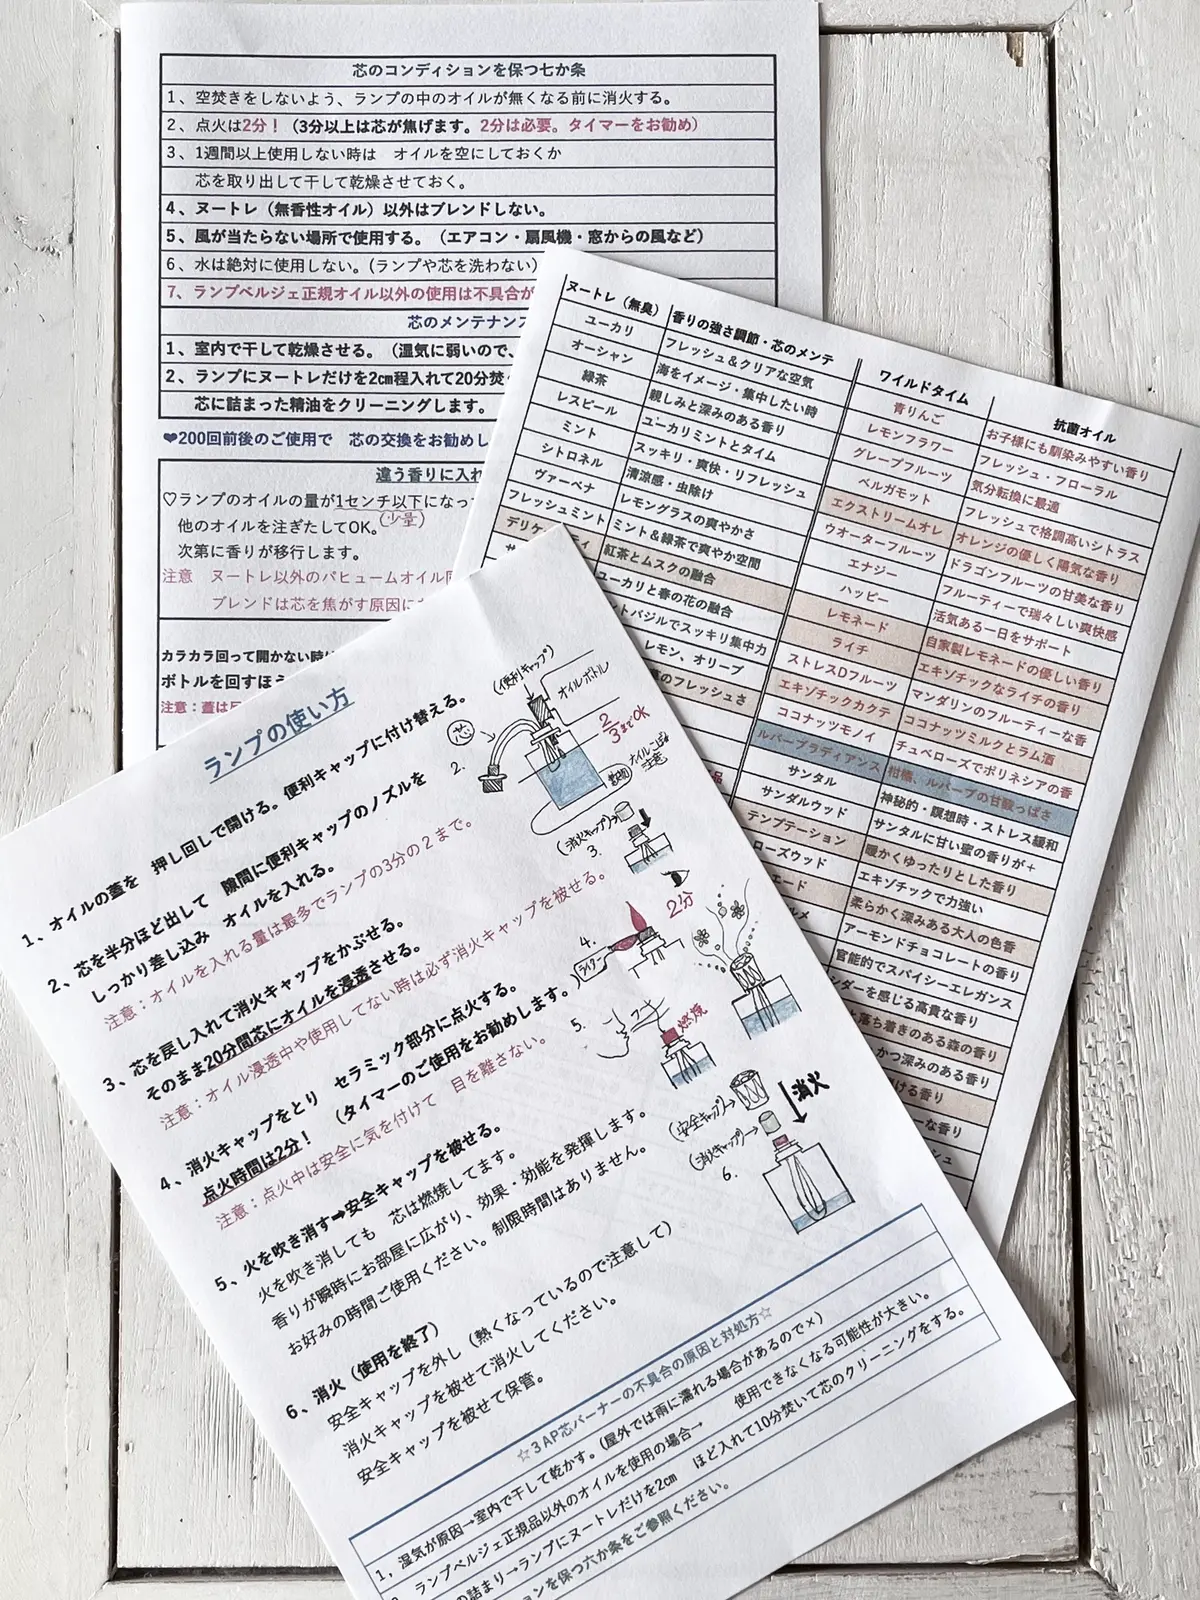 芯のコンディションを保つ七か条
1、空焚きをしないよう、ランプの中のオイルが無くなる前に消火する。
2、点火は2分！（3分以上は芯が焦げます。2分は必要。タイマーをお勧め）
3、1週間以上使用しない時は　オイルを空にしておくか
芯を取り出して干して乾燥させておく。
4、ヌートレ（無香性オイル）以外はブレンドしない。
5、風が当たらない場所で使用する。（エアコン・扇風機・窓からの風など）
6、水は絶対に使用しない。（ランプや芯を洗わない）
7、ランプベルジェ正規オイル以外の使用は不具合が
芯のメンテナンス
1、室内で干して乾燥させる。（湿気に弱いので、
2、ランプにヌートレだけを2㎝程入れて20分焚
芯に詰まった精油をクリーニングします。
❤200回前後のご使用で　芯の交換をお勧めし
違う香りに入れ
♡ランプのオイルの量が1センチ以下になっ
(少量)
他のオイルを注ぎたしてOK。
次第に香りが移行します。
注意　ヌートレ以外のパヒュームオイル同
ブレンドは芯を焦がす原因に
カラカラ回って開かない時は
ボトルを回すほう
注意：蓋は
ヌートレ（無臭）　香りの強さ調節・芯のメンテ
ユーカリ　フレッシュ＆クリアな空気
オーシャン　海をイメージ・集中したい時
緑茶　親しみと深みのある香り
レスピール　ユーカリミントとタイム
ミント　スッキリ・爽快・リフレッシュ
シトロネル　清涼感・虫除け
ヴァーベナ　レモングラスの爽やかさ
フレッシュミント　ミント＆緑茶で爽やか空間
デリケ　ティ　紅茶とムスクの融合
ユーカリと春の花の融合
ントバジルでスッキリ集中力
レモン、オリーブ
のフレッシュさ
品
ワイルドタイム　抗菌オイル
青りんご　お子様にも馴染みやすい香り
レモンフラワー　フレッシュ・フローラル
グレープフルーツ　気分転換に最適
ベルガモット　フレッシュで格調高いシトラス
エクストリームオレ　オレンジの優しく陽気な香り
ウオーターフルーツ　ドラゴンフルーツの甘美な香り
エナジー　フルーティーで瑞々しい爽快感
ハッピー　活気ある一日をサポート
レモネード　自家製レモネードの優しい香り
ライチ　エキゾチックなライチの香り
ストレスDフルーツ　マンダリンのフルーティーな香
エキゾチックカクテ　ココナッツミルクとラム酒
ココナッツモノイ　チュベローズでポリネシアの香
ルバーブラディアンス　柑橘、ルバーブの甘酸っぱさ
サンタル　神秘的・瞑想時・ストレス緩和
サンダルウッド　サンタルに甘い蜜の香りが＋
テンプテーション　暖かくゆったりとした香り
ローズウッド　エキゾチックで力強い
ェード　柔らかく深みある大人の色香
ルメ　アーモンドチョコレートの香り
官能的でスパイシーエレガンス
ンダーを感じる高貴な香り
落ち着きのある森の香り
かつ深みのある香り
ける香り
ーな香り
シュ
ランプの使い方
1、オイルの蓋を　押し回しで開ける。便利キャップに付け替える。
2、芯を半分ほど出して　隙間に便利キャップのノズルを
しっかり差し込み　オイルを入れる。
注意：オイルを入れる量は最多でランプの3分の２まで。
3、芯を戻し入れて消火キャップをかぶせる。
そのまま20分間芯にオイルを浸透させる。
注意：オイル浸透中や使用してない時は必ず消火キャップを被せる。
4、消火キャップをとり　セラミック部分に点火する。
点火時間は2分！　（タイマーのご使用をお勧めします。）
注意：点火中は安全に気を付けて　目を離さない。
5、火を吹き消す➡安全キャップを被せる。
火を吹き消しても　芯は燃焼してます。
香りが瞬時にお部屋に広がり、効果・効能を発揮します。
お好みの時間ご使用ください。制限時間はありません。
6、消火（使用を終了）
安全キャップを外し（熱くなっているので注意して）
消火キャップを被せて消火してください。
安全キャップを被せて保管。
(便利キャップ)
オイルボトル
芯
2.
2/3までOK
オイルこぼれ注意
(消火キャップ)
3.
4.
ライター
2分
5.
フー
燃焼
(安全キャップ)
(消火キャップ)
消火
6.
☆３AP芯バーナーの不具合の原因と対処方☆
1、湿気が原因→室内で干して乾かす。（屋外では雨に濡れる場合があるので×）
ランプベルジェ正規品以外のオイルを使用の場合→　使用できなくなる可能性が大きい。
の詰まり→ランプにヌートレだけを2㎝　ほど入れて10分焚いて芯のクリーニングをする。
ョンを保つ六か条をご参照ください。